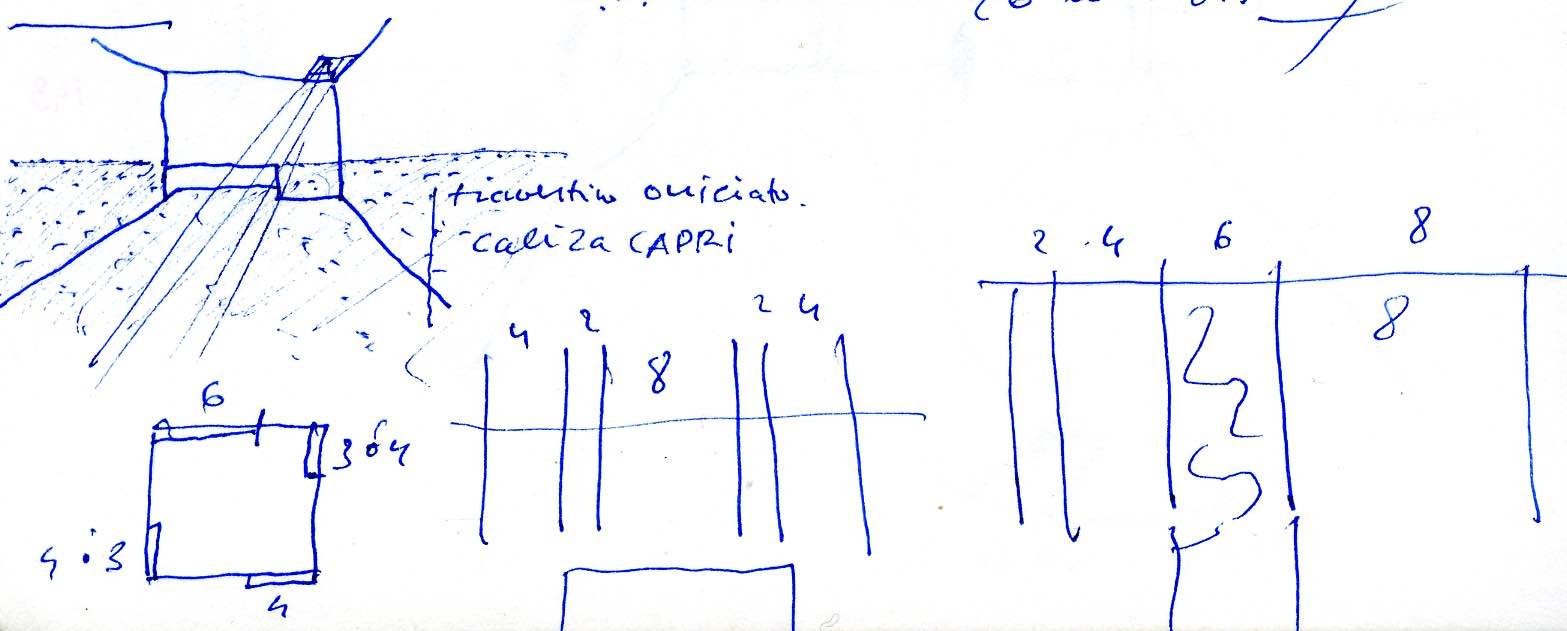 travertino oniciato.
caliza CAPRi
2 4 6 8
8
4 2 8 2 4
6
3 ó 4
4 ó 3
4